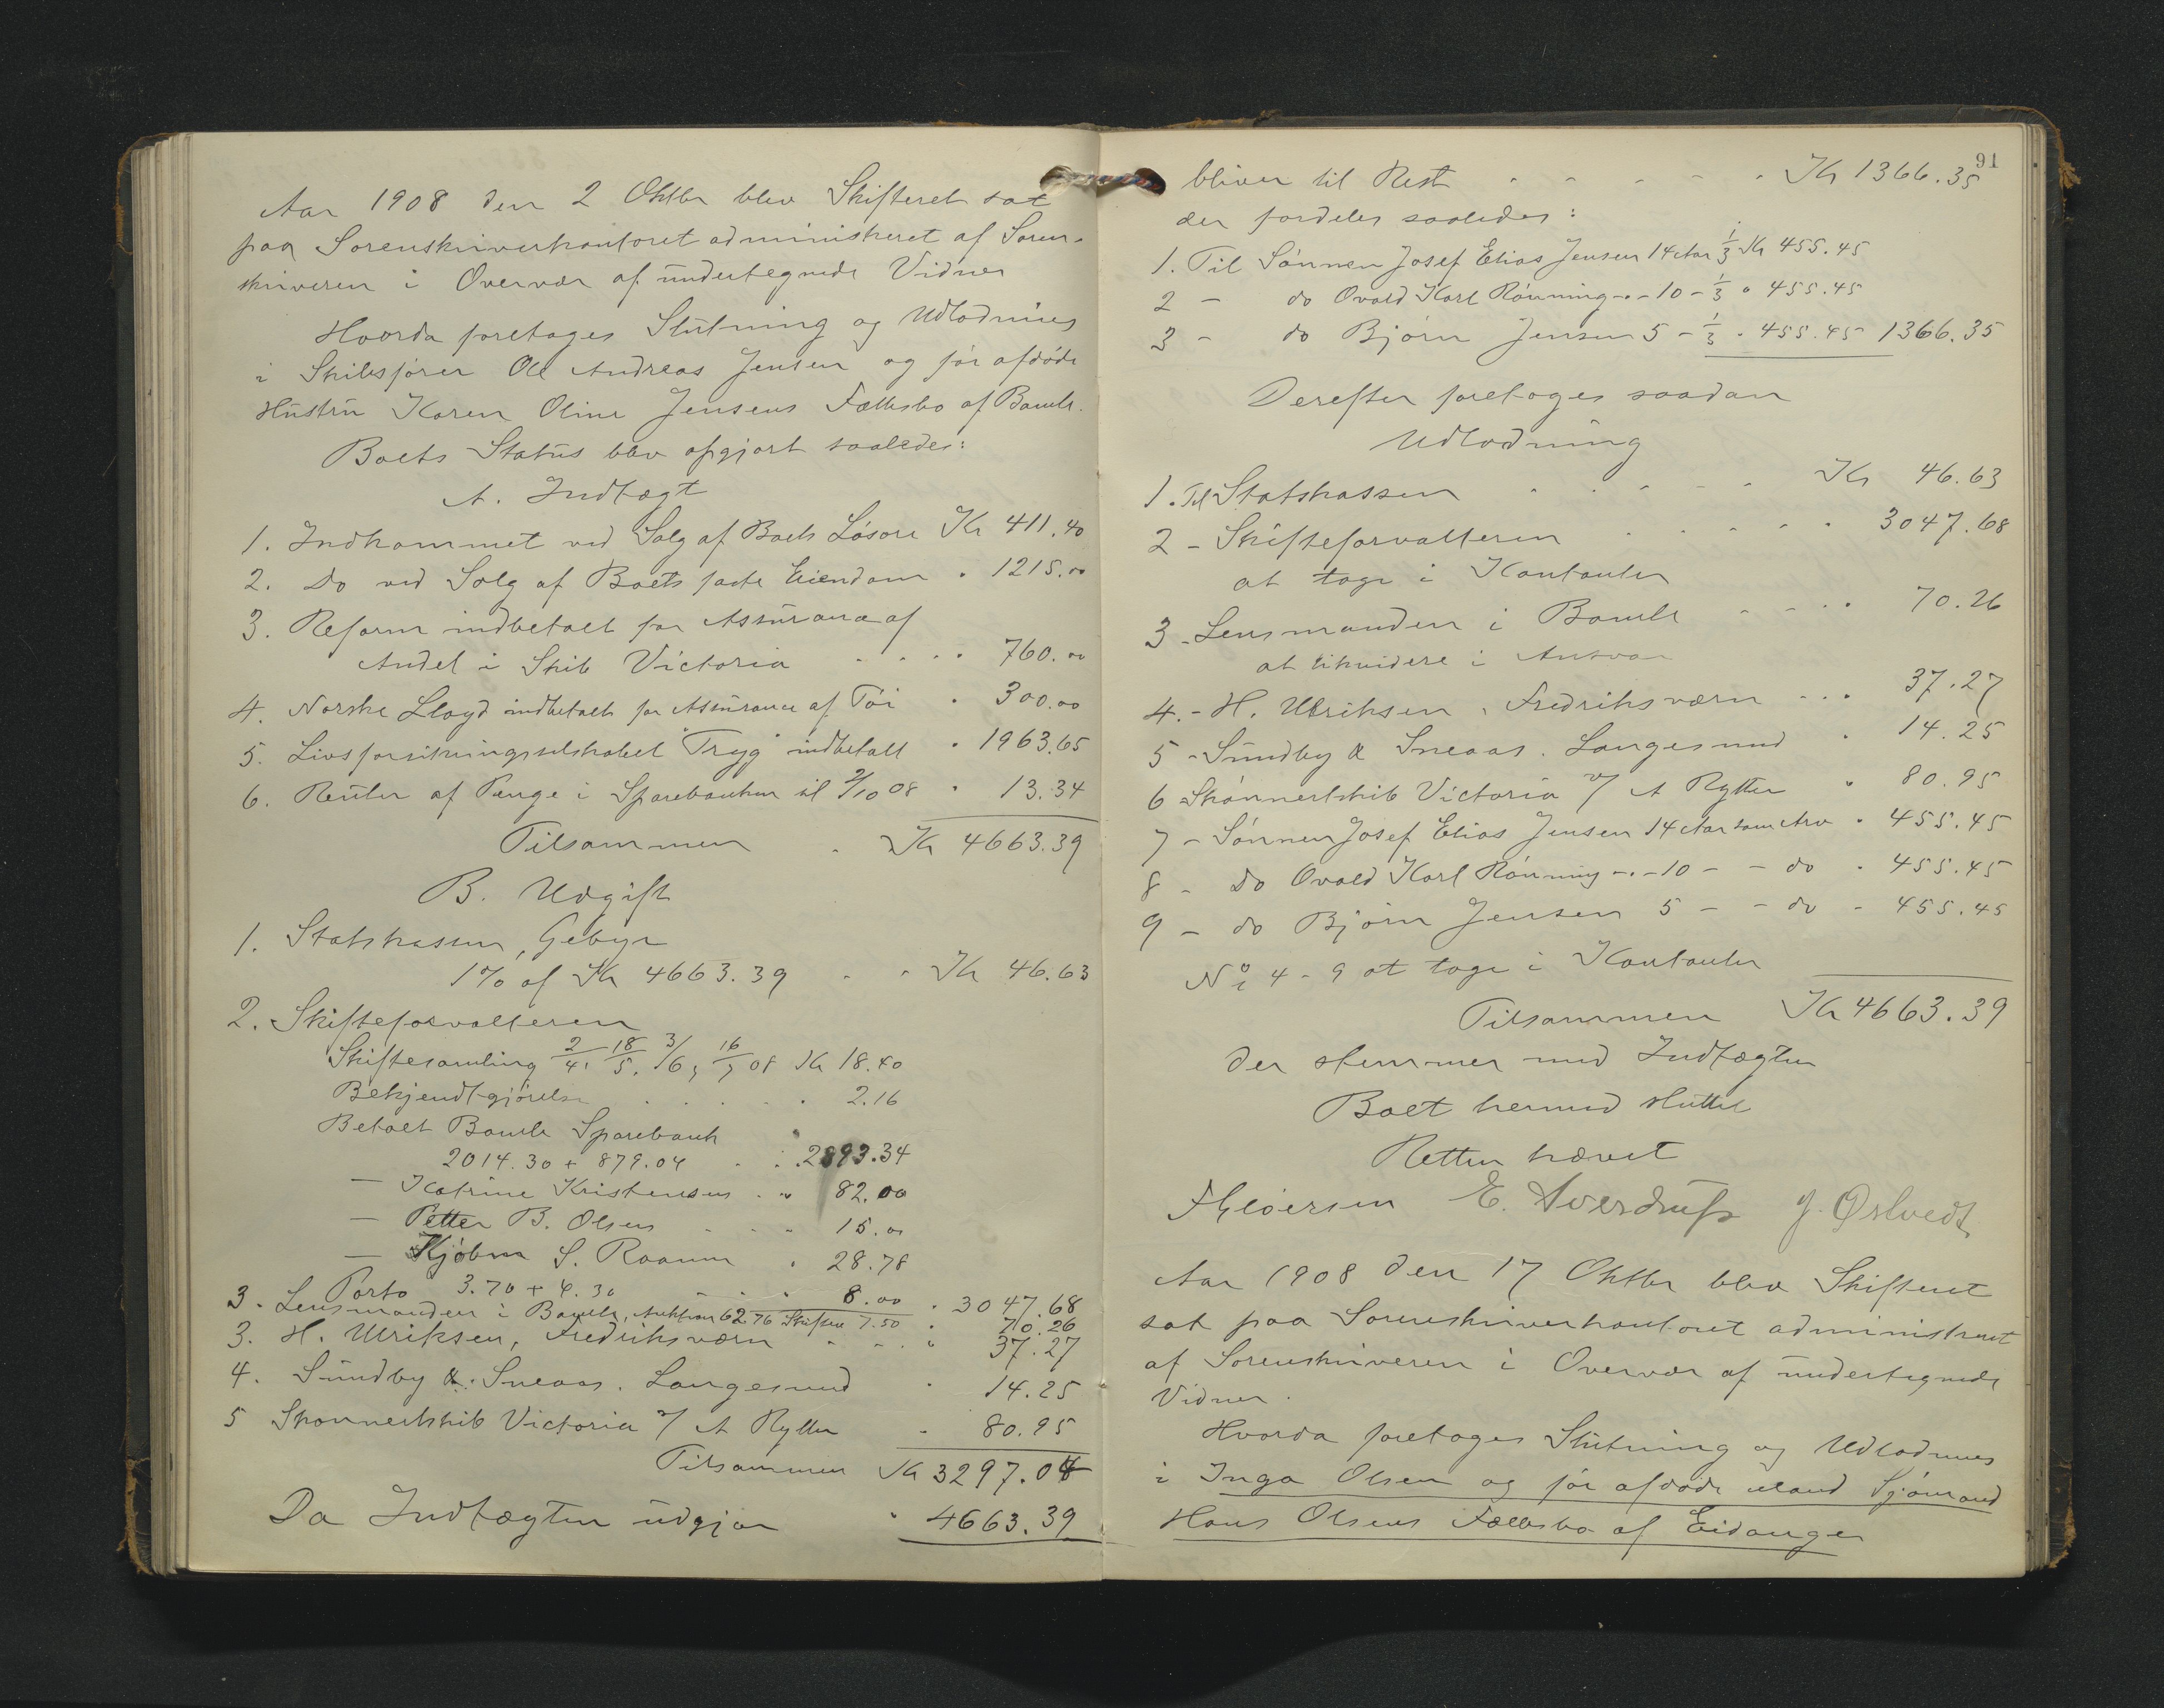 Aar 1908 den 2 Oktbr blev Skifteret sat
paa Sorenskriverkontoret administreret af Soren-
skriveren i Overvær af undertegnede Vidner
Hvorda foretages Slutning og Udlodnings
i Skibsfører Ole Andreas Jensen og før afdøde
Hustru Karen Oline Jensens Fællesbo af Bamle.
Boets Status blev opgjort saaledes:
A. Indtægt
1. Indkommet ved Salg af Boets Løsøre Kr 411.40
2. Do ved Salg af Boets faste Eiendom " 1215.00
3. Reform indbetalt for Assurance af
Andel i Skib Victoria . . . . 760.00
4. Norske Lloyd indbetalt for Assurance af Tøi " 300.00
5. Livsforsikringsselskabet "Tryg" indbetalt " 1963.65
6. Renter af Penge i Sparebanken til 2/10 08 " 13.34
Tilsammen . Kr 4663.39
B. Udgift
1. Statskassen, Gebyr
1% af Kr 4663.39 . . Kr 46.63
2. Skifteforvalteren
Skiftesamling 2/4, 18/5, 3/6, 16/7 08 Kr 18.40
Bekjendtgjørelse . . . . . 2.16
Betalt Bamle Sparebank
2014.30 + 879.04 . . . 2893.34
— Katrine Kristensen . " 82.00
— Petter B. Olsen . . . 15.00
— Kjøbm S. Raanum . 28.78
Porto 3.70 + 4.30 . . . 8.00 " 3047.68
3. Lensmanden i Bamle, Auktion 62.76 Skiftem 7.50 " 70.26
3. H. Ulriksen, Fredriksværn . . . " 37.27
4. Sundby & Sneaas. Langesund " 14.25
5 Skonnertskib Victoria v/ A Rytter . 80.95
Tilsammen Kr 3297.04
Da Indtægten udgjør " 4663.39
91
bliver til Rest . . . . . . Kr 1366.35
der fordeles saaledes:
1. Til Sønnen Josef Elias Jensen 14 Aar 1/3 Kr 455.45
2 — do Ovald Karl Rønning -"- 10 - 1/3 " 455.45
3 — do Bjørn Jensen 5 - 1/3 " 455.45 1366.35
Derefter foretages saadan
Udlodning
1. Til Statskassen . . . . . Kr 46.63
2 - Skifteforvalteren . . . . . 3047.68
at tage i Kontanter
3 - Lensmanden i Bamle . . . . 70.26
at likvidere i Ansvar
4. - H. Ulriksen, Fredriksværn . . . 37.27
5 - Sundby & Sneaas. Langesund " 14.25
6 Skonnertskib Victoria v/ A Rytter " 80.95
7 - Sønnen Josef Elias Jensen 14 Aar som Arv " 455.45
8 - Do Ovald Karl Rønning -"- 10 - - do " 455.45
9 - do Bjørn Jensen 5 - - do - 455.45
No 4 - 9 at tage i Kontanter
Tilsammen Kr 4663.39
der stemmer med Indtægten
Boet hermed sluttet
Retten hævet
E. Sverdrup J. Østvedt
Aar 1908 den 17 Oktbr blev Skifteret
sat paa Sorenskriverkontoret administreret
af Sorenskriveren i Overvær af undertegnede
Vidner.
Hvorda foretages Slutning og Udlodnings
i Inga Olsen og før afdøde Mand Sjømand
Hans Olsens Fællesbo af Eidanger